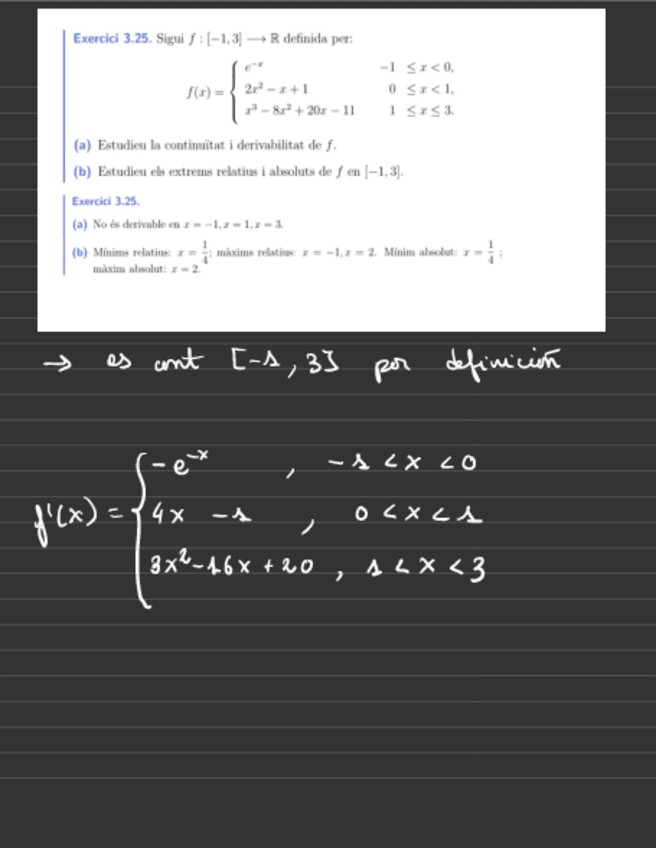 Exercici 3.25. Sigui f : [−1, 3] ⟶ ℝ definida per:
f(x) = { e^{-x}    −1 ≤ x < 0,
2x² − x + 1    0 ≤ x < 1,
x³ − 8x² + 20x − 11    1 ≤ x ≤ 3.
(a) Estudieu la continuïtat i derivabilitat de f.
(b) Estudieu els extrems relatius i absoluts de f en [−1, 3].
Exercici 3.25.
(a) No és derivable en x = −1, x = 1, x = 3.
(b) Mínims relatius: x = 1/4; màxims relatius: x = −1, x = 2. Mínim absolut: x = 1/4 ;
màxim absolut: x = 2.
→ es cont [-1, 3] por definición
f'(x) = { -e^{-x} , -1 < x < 0
4x -1 , 0 < x < 1
3x² - 16x + 20 , 1 < x < 3